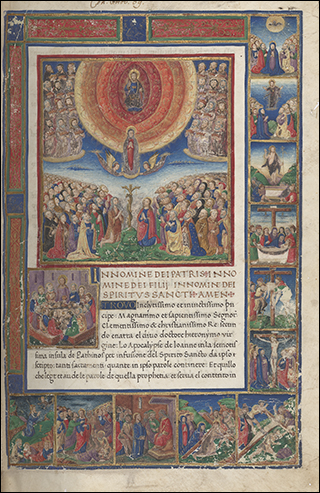 IN NOMINE DEI PATRIS & IN NO
MINE DEI FILII, IN NOMIN DEI
SPIRITVS SANCTI. AMEN
inclytissimo et invictissimo prin
cipe. Magnanimo et sapientissimo Segnor
Clementissimo & christianissimo Re.
doctore hieronymo vir
gine: Lo Apocalypse de Joanne in la
insula de Pathmos per infusione del Spirito Sancto da ipso
scripto: tanti sacramenti quante in ipso parole contenere: Et quillo
che lege et aude le parole de quella prophetia: et serva el contento in